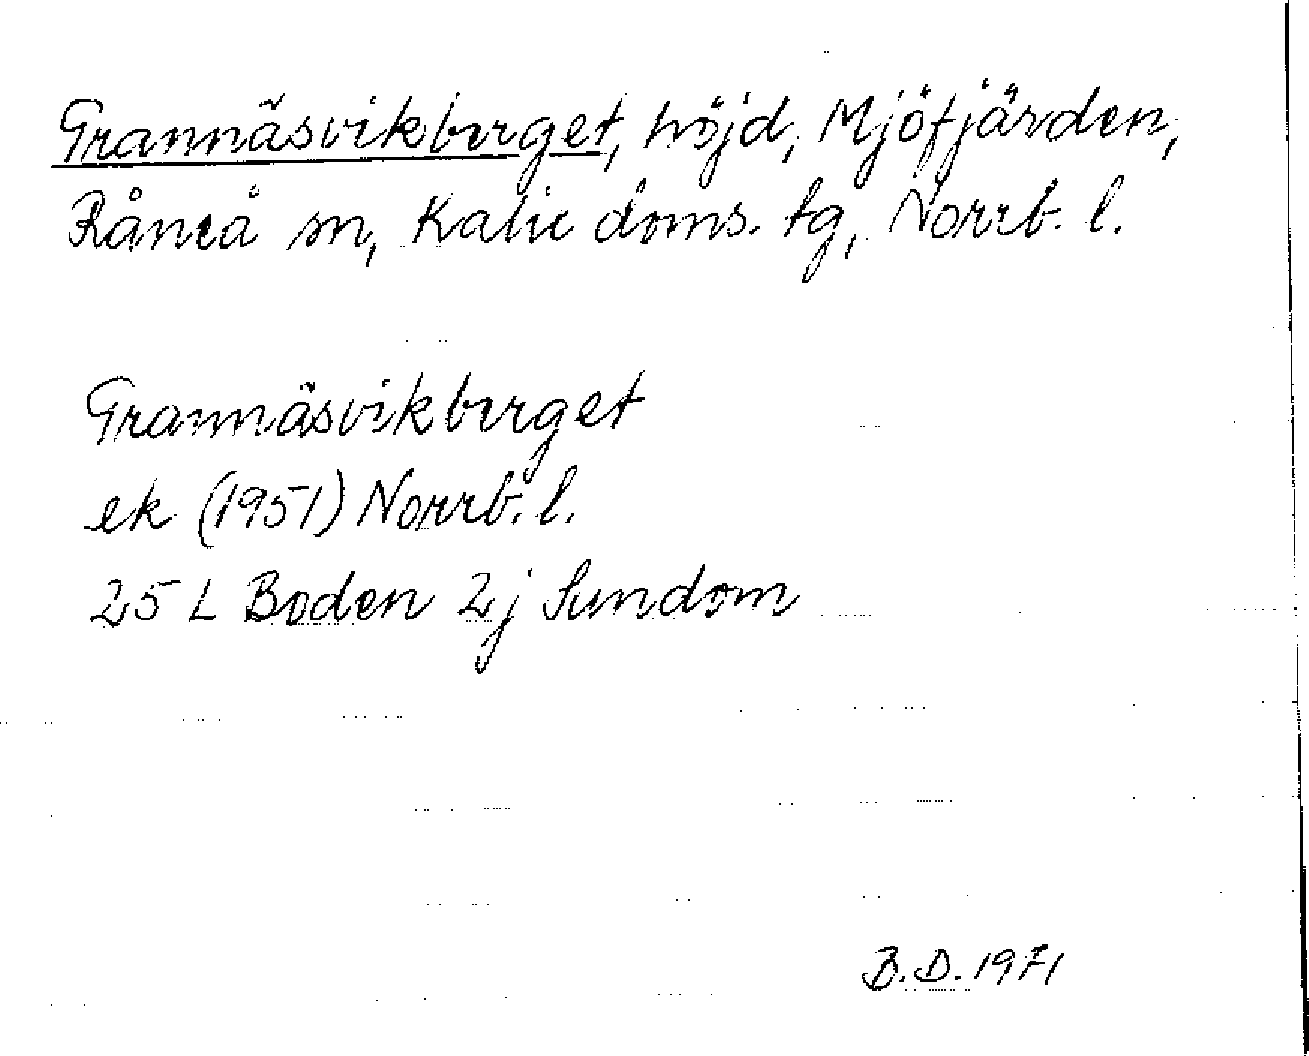 Grannäsvikberget, höjd, Mjöfjärden,
Råneå sn, Kalix doms. tg, Norrb. l.
Grannäsvikberget
ek (1951) Norrb. l.
25 L Boden 2j Sundom
B.D. 1971